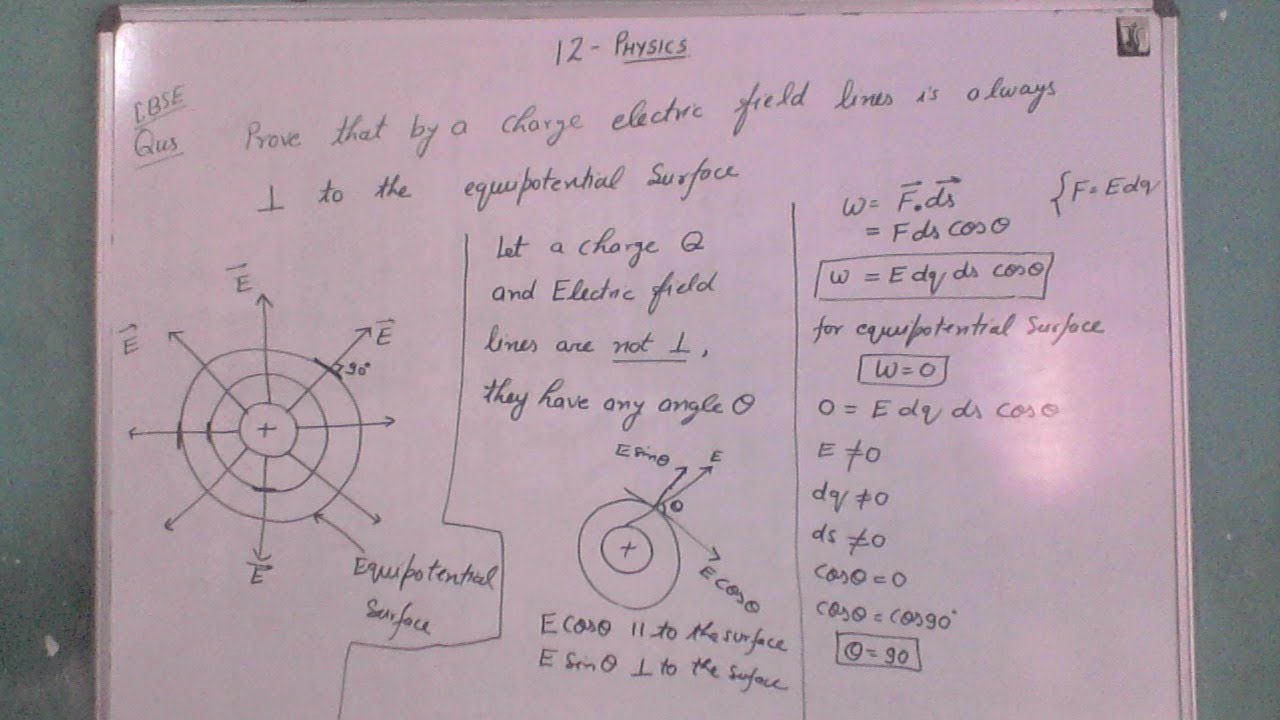 12 - PHYSICS
CBSE
Qus Prove that by a charge electric field lines is always
⊥ to the equipotential Surface
E⃗
E⃗
E⃗
90°
+
E⃗
Equipotential
Surface
Let a charge Q
and Electric field
lines are not ⊥,
they have any angle θ
E sinθ
E
θ
+
E cosθ
E cosθ || to the surface
E sinθ ⊥ to the surface
W = F⃗.ds⃗ {F = Edq
= F ds cosθ
W = E dq ds cosθ
for equipotential Surface
W=0
0 = E dq ds cosθ
E ≠0
dq ≠0
ds ≠0
cosθ = 0
cosθ = cos90°
θ = 90